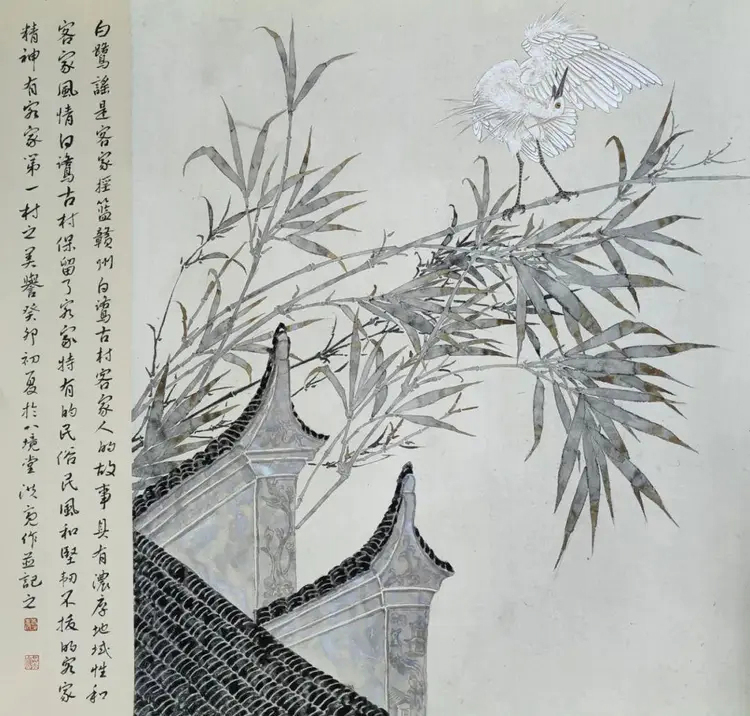 白鹭謠是客家摇篮赣州白鹭古村客家人的故事具有濃厚地域性和
客家風情白鹭古村保留了客家特有的民俗民風和堅韧不拔的客家
精神有客家第一村之美譽癸卯初夏於八境堂洪亮作並記之